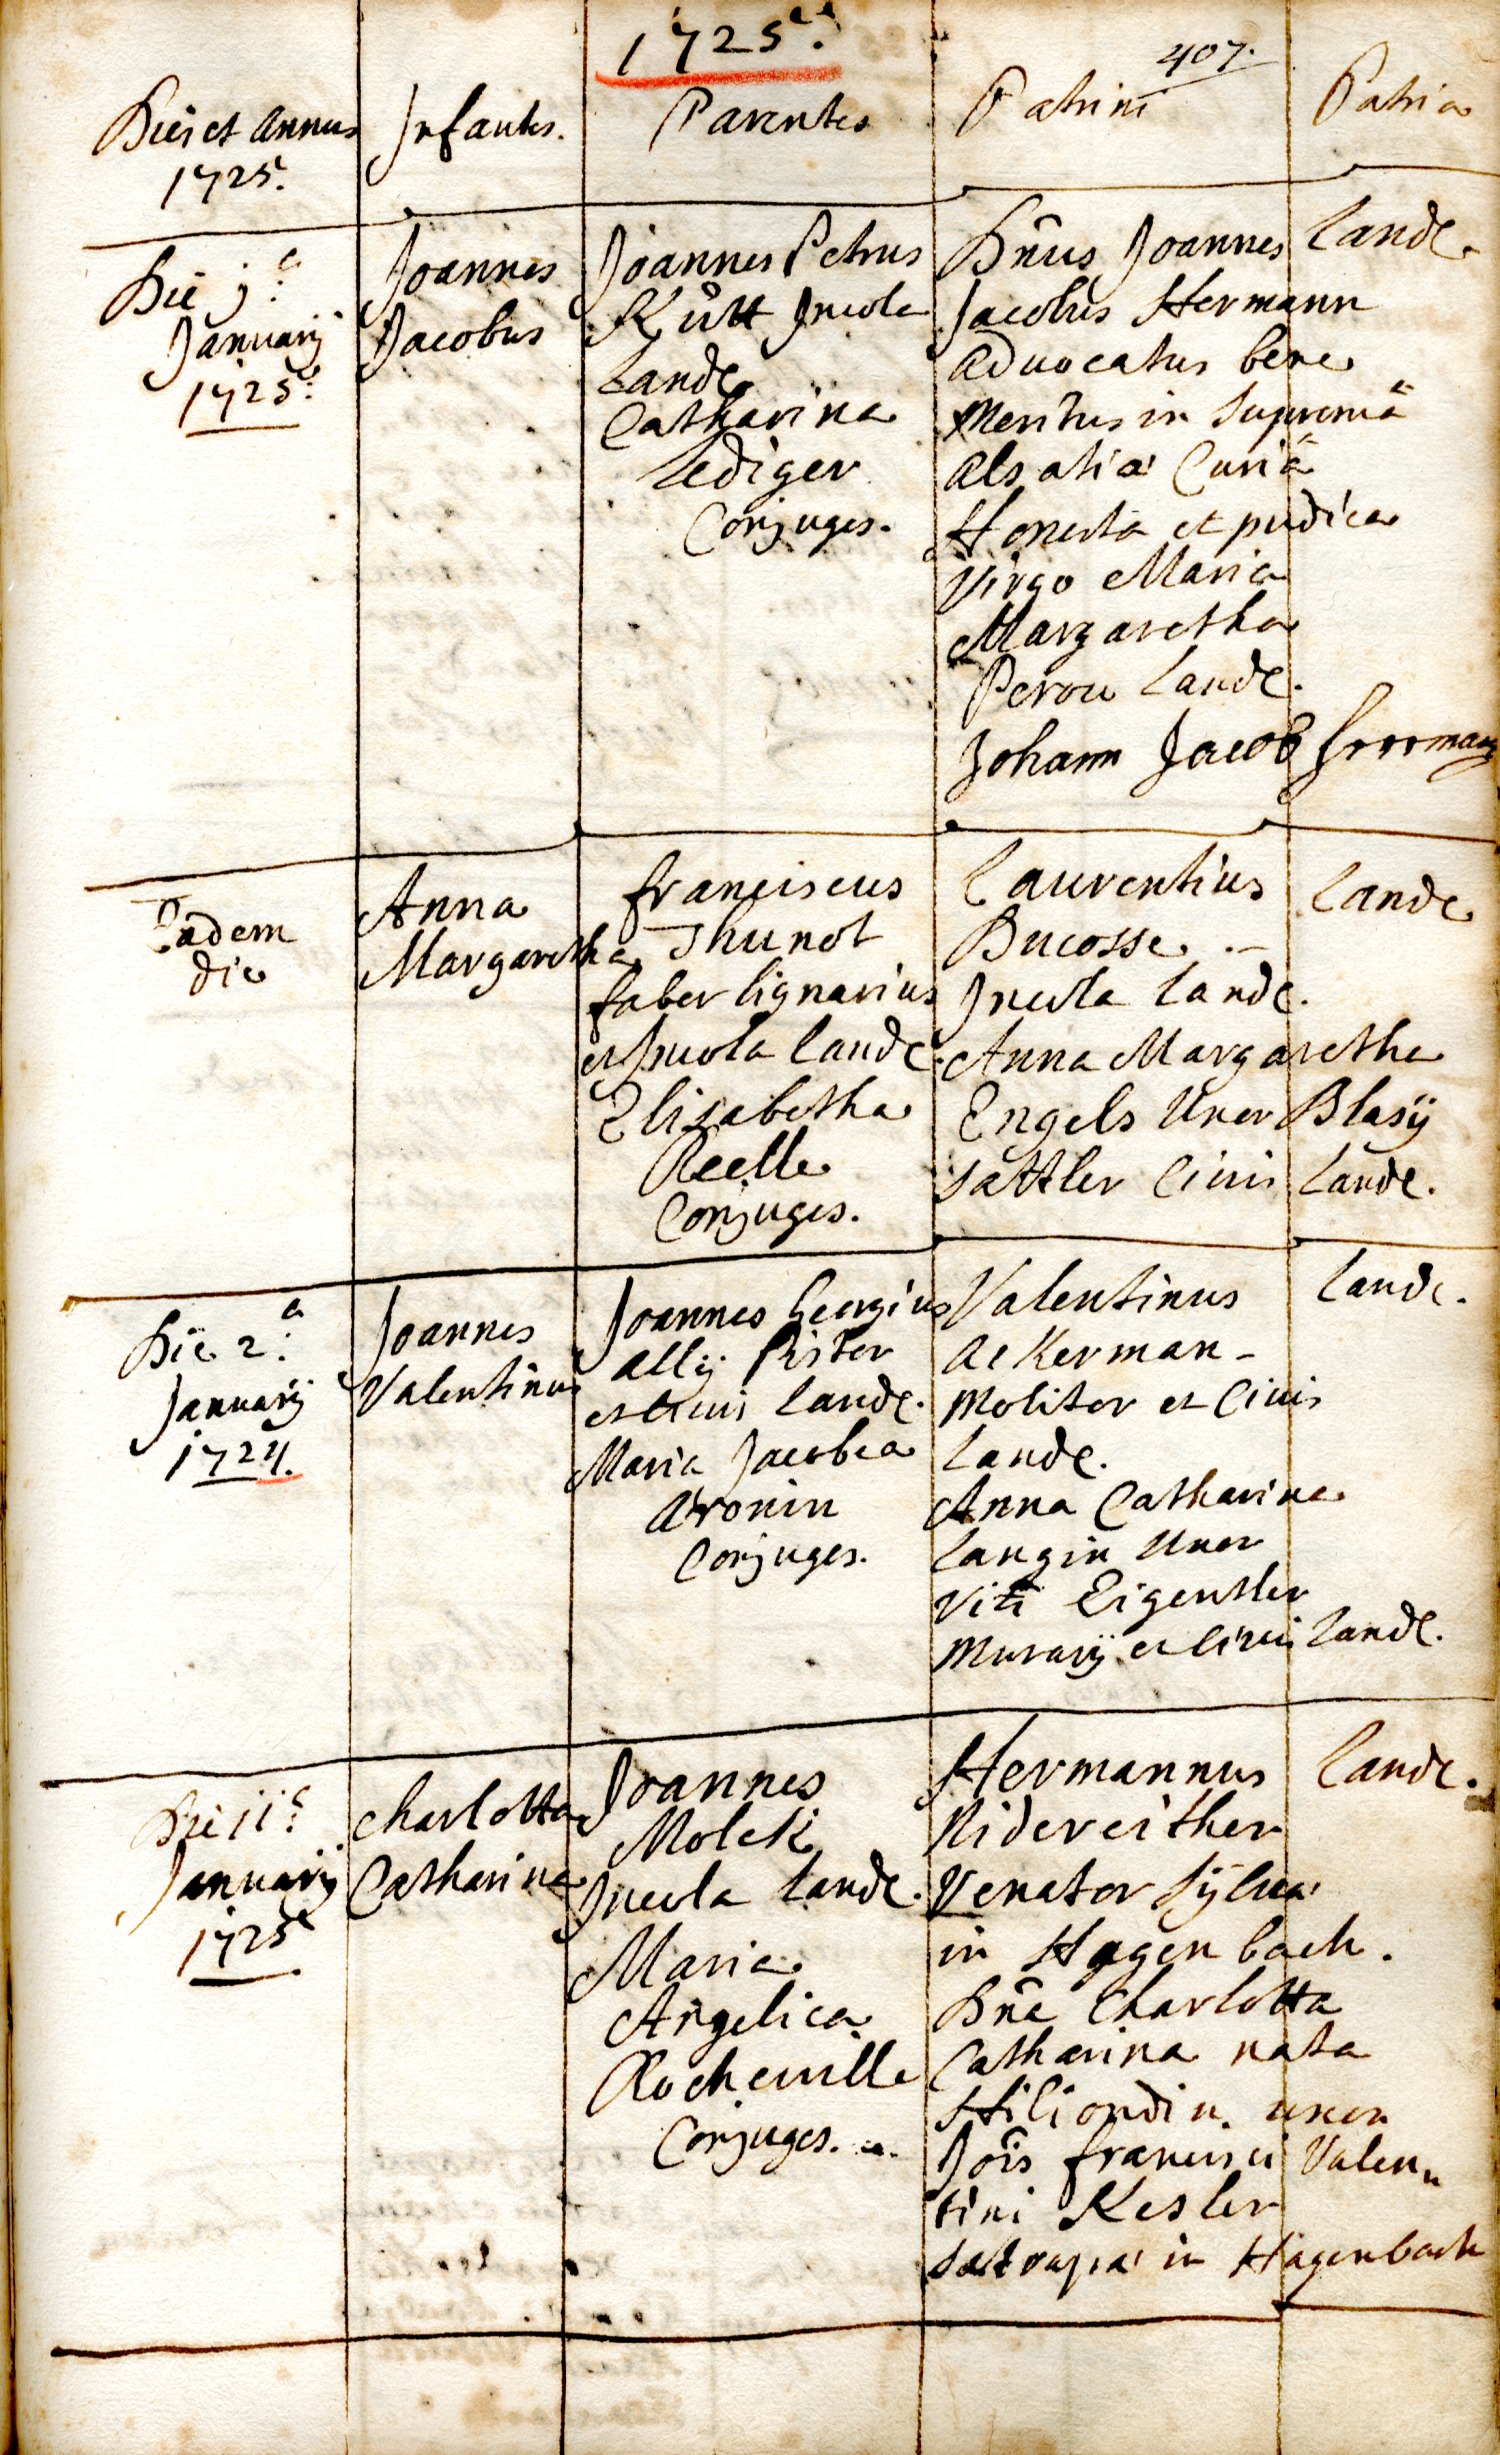 1725.
407.
Dies et annus
1725.
Infantes.
Parentes
Patrini
Patria
Die 1ª
Januarij
1725.
Joannes
Jacobus
Joannes Petrus
Kütt Incola
Lande
Catharina
Lediger
Conjuges.
Dnus Joannes
Jacobus Hermann
advocatus bene
meritus in suprema
alsatiæ Curiâ
Honesta et pudica
Virgo Maria
Margaretha
Perou Lande.
Johann Jacob
Lande.
Eadem
die
Anna
Margaretha
franciscus
Thunot
faber lignarius
et Incola Lande.
Elisabetha
Reelle
Conjuges.
Laurentius
Bucosse -
Incola Lande.
Anna Margaretha
Engels Uxor Blasij
Sattler Civis Lande.
Lande
Die 2ª
Januarij
1724.
Joannes
Valentinus
Joannes Georgius
Allij Pistor
et Civis Lande.
Maria Jacobea
Aronin
Conjuges.
Valentinus
Ackerman -
Molitor et Civis
Lande.
Anna Catharina
Langin Uxor
Viti Eigentler
Murarij et Civis Lande.
Lande.
Die 11ª
Januarij
1725
Charlotta
Catharina
Joannes
Molck
Incola Lande.
Maria
Angelica
Rocheville
Conjuges.
Hermannus
Nidereither
Venator Sylvæ
in Hagenbach.
Dna Charlotta
Catharina nata
Hiliondin uxor
Jois francisci Valen„
tini Kesler
Satrapæ in Hagenbach
Lande.